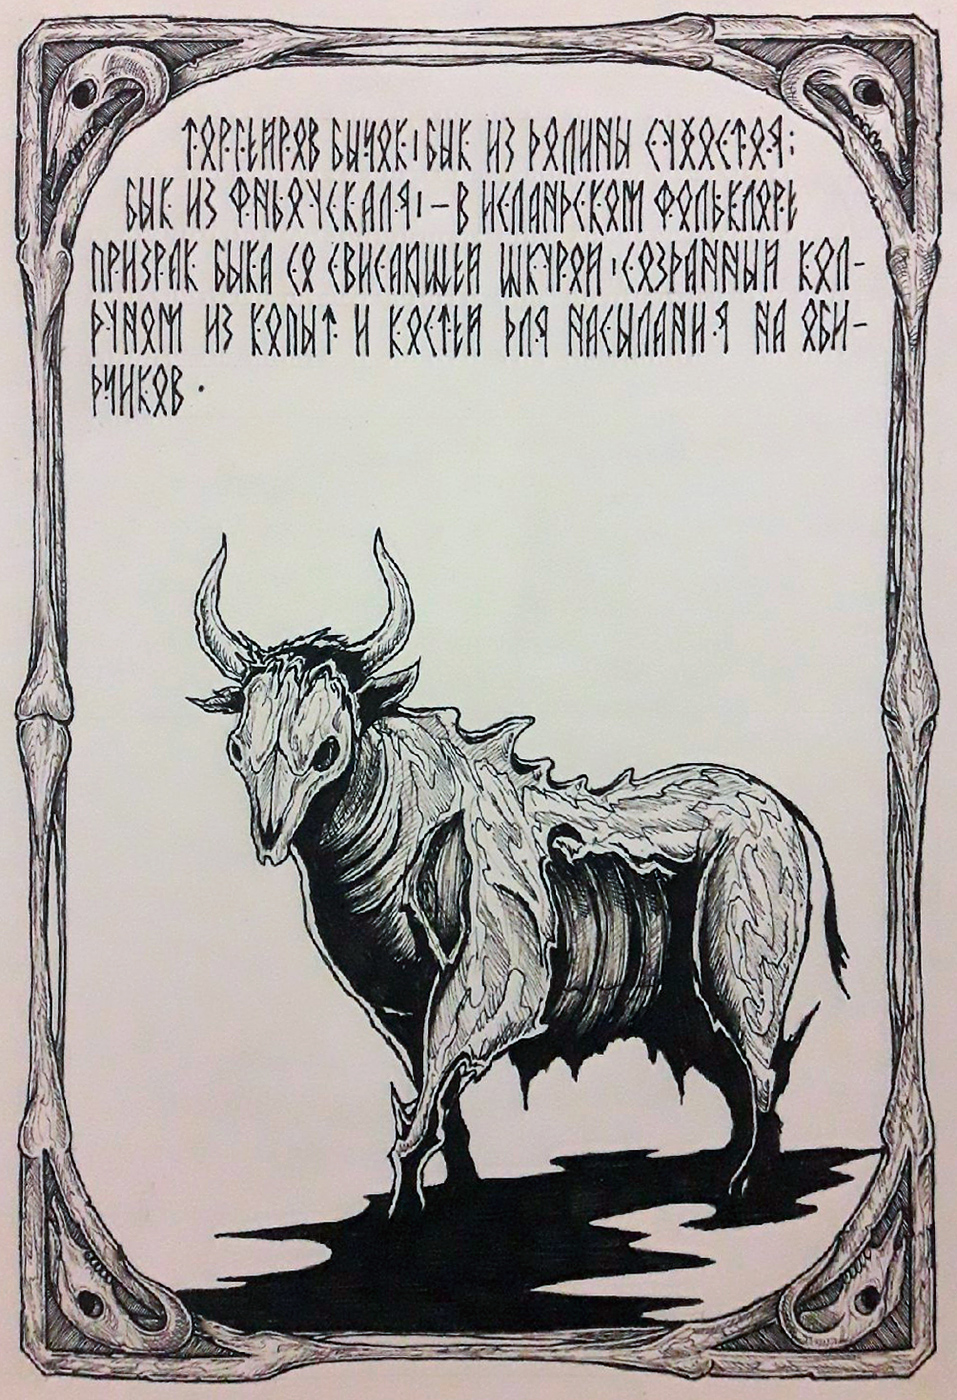 ТОРГЕЙРОВ БЫЧОК, БЫК ИЗ ДОЛИНЫ СУХОСТОЯ;
БЫК ИЗ ФНЬОУСКАЛЯ, — В ИСЛАНДСКОМ ФОЛЬКЛОРЕ
ПРИЗРАК БЫКА СО СВИСАЮЩЕЙ ШКУРОЙ, СОЗДАННЫЙ КОЛ-
ДУНОМ ИЗ КОПЫТ И КОСТЕЙ ДЛЯ НАСЫЛАНИЯ НА ОБИ-
ДЧИКОВ.